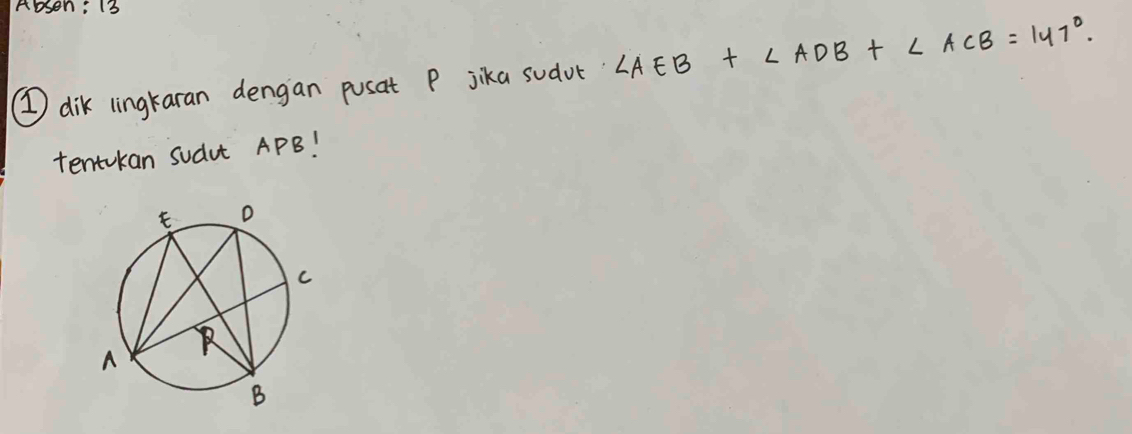 Absen : 13
① dik lingkaran dengan pusat P jika sudut ∠AEB + ∠ADB + ∠ACB = 147°.
tentukan sudut APB!
E D
C
P
A
B